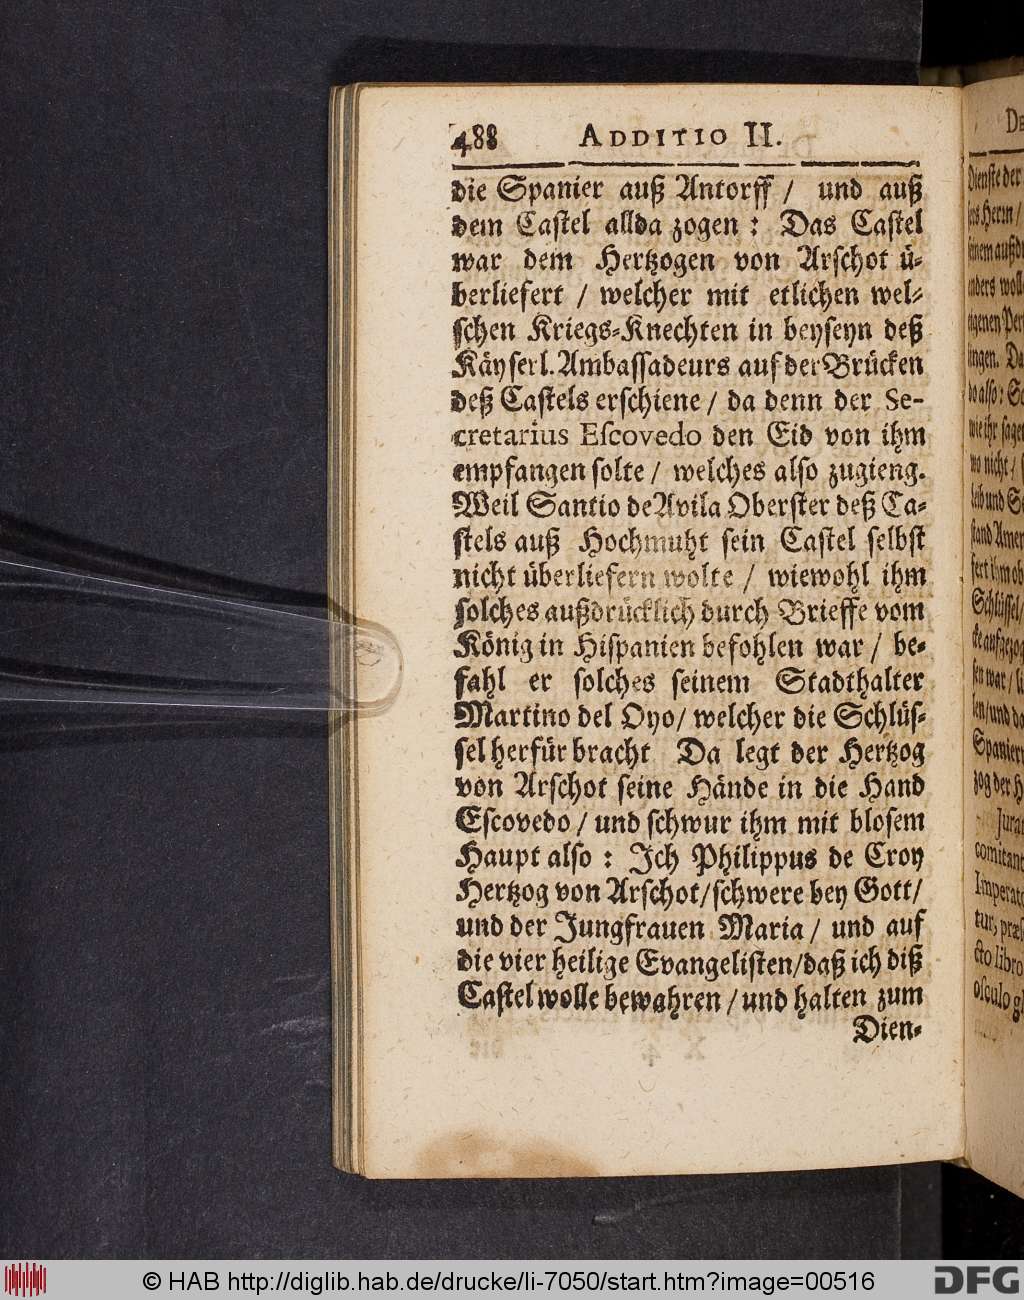 488 ADDITIO II.
die Spanier auß Antorff / und auß
dem Castel allda zogen : Das Castel
war dem Hertzogen von Arschot ü-
berliefert / welcher mit etlichen wel-
schen Kriegs-Knechten in beyseyn deß
Käyserl. Ambassadeurs auf der Brücken
deß Castels erschiene / da denn der Se-
cretarius Escovedo den Eid von ihm
empfangen solte / welches also zugieng.
Weil Santio de Avila Oberster deß Ca-
stels auß Hochmuht sein Castel selbst
nicht überliefern wolte / wiewohl ihm
solches außdrücklich durch Brieffe vom
König in Hispanien befohlen war / be-
fahl er solches seinem Stadthalter
Martino del Oyo / welcher die Schlüs-
sel herfür bracht Da legt der Hertzog
von Arschot seine Hände in die Hand
Escovedo / und schwur ihm mit blosem
Haupt also : Ich Philippus de Croy
Hertzog von Arschot / schwere bey Gott /
und der Jungfrauen Maria / und auf
die vier heilige Evangelisten / daß ich diß
Castel wolle bewahren / und halten zum
Dien-
Dienste der
Herrn /
wie ihr
wo nicht /
leib und
Schlüssel /
Spanier
zog der
comitant
Imperato
osculo
© HAB http://diglib.hab.de/drucke/li-7050/start.htm?image=00516
DFG